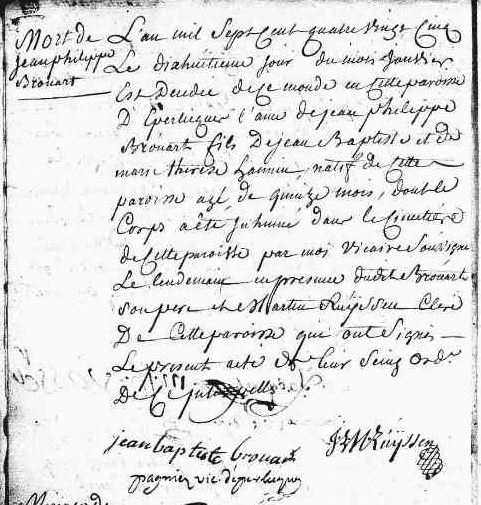 Mort de
jean philippe
Brouart
L'an mil Sept Cent quatre vingt Cinq
Le dixhuitieme jour du mois janvier
Est Decedée de Ce monde en Cette paroisse
D'Eperlecques l'ame de jean philippe
Brouart fils De jean Baptiste et de
marie therese natif de Cette
paroisse agé de quinze mois, dont le
Corps a été Inhumé dans le Cimetiere
de Cette paroisse par moi Vicaire Soussigné
Le lendemain en presence dudit Brouart
Son pere et Martin Ruÿssen Clerc
De Cette paroisse qui ont Signés
Le present acte de leur Seing ord.e
De Ce
jean baptiste brouart
Ruÿssen
pagniez vic. d'eperlecques